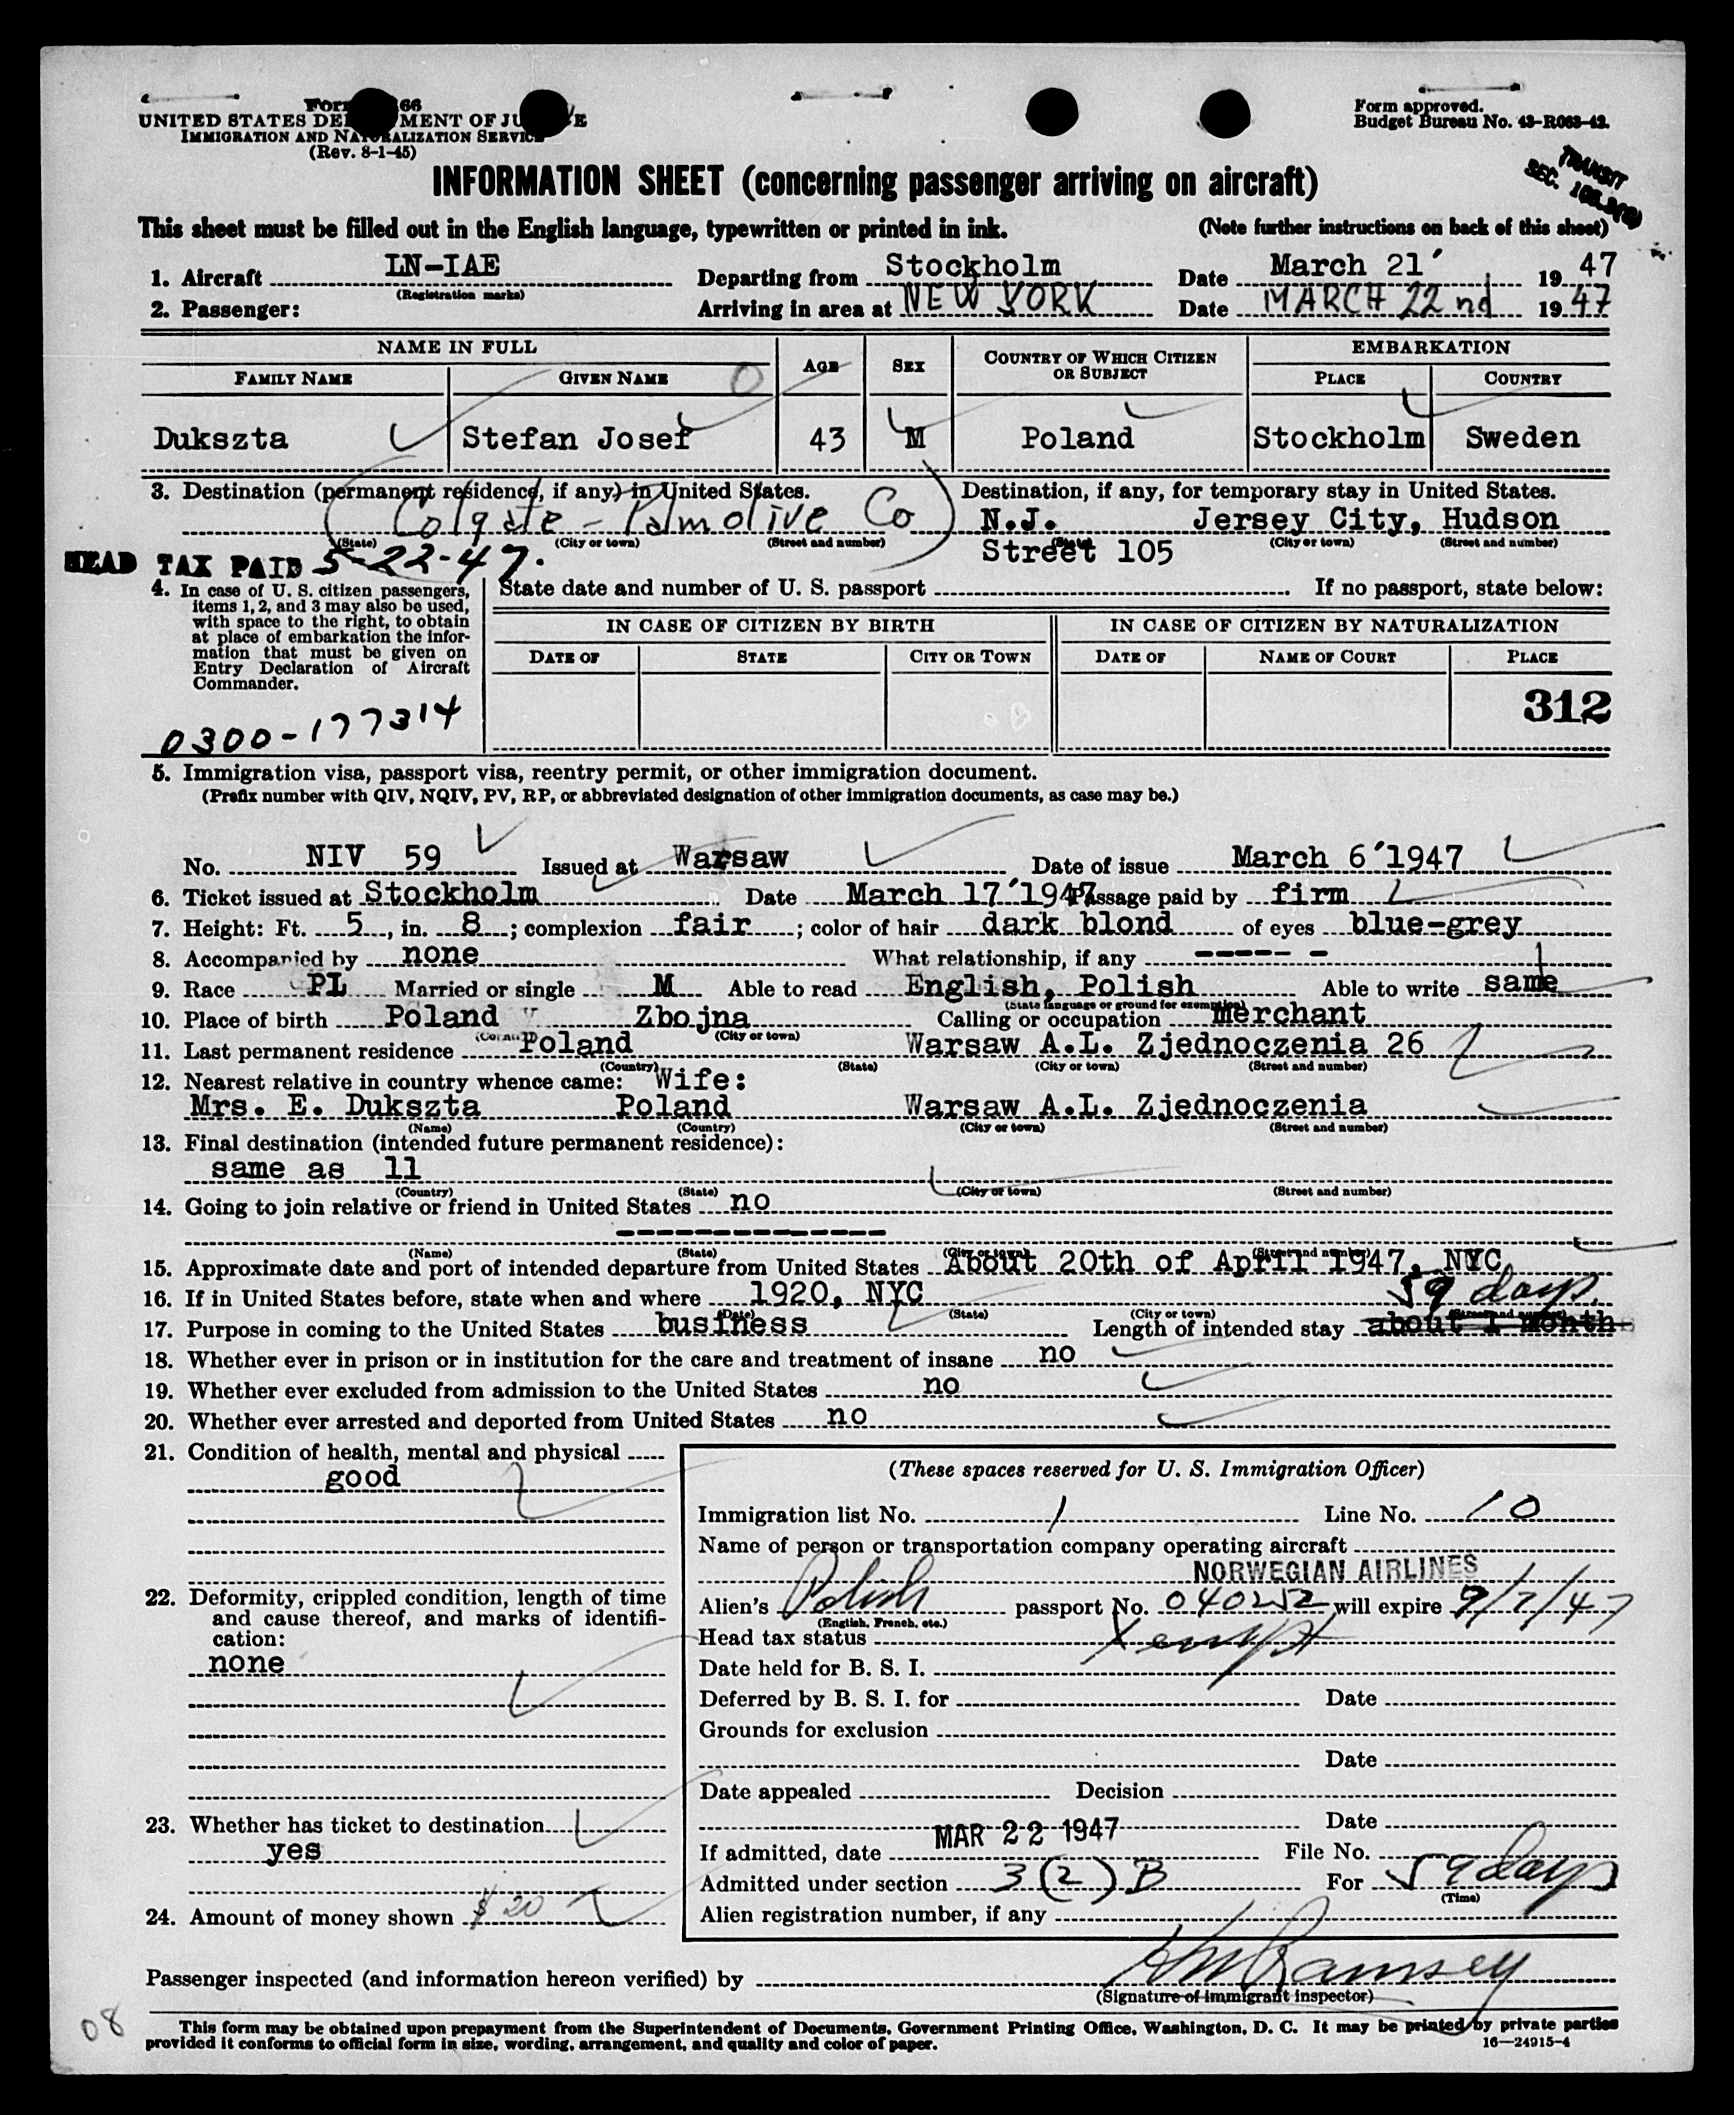 Form 66
UNITED STATES DEPARTMENT OF JUSTICE
IMMIGRATION AND NATURALIZATION SERVICE
(Rev. 8-1-45)
Form approved.
Budget Bureau No. 43-R063-42.
TRANSIT
SEC.
INFORMATION SHEET (concerning passenger arriving on aircraft)
This sheet must be filled out in the English language, typewritten or printed in ink. (Note further instructions on back of this sheet)
1. Aircraft LN-IAE Departing from Stockholm Date March 21' 1947
(Registration marks)
2. Passenger: Arriving in area at NEW YORK Date MARCH 22nd 1947
NAME IN FULL AGE SEX COUNTRY OF WHICH CITIZEN OR SUBJECT EMBARKATION
FAMILY NAME GIVEN NAME PLACE COUNTRY
Dukszta Stefan Josef 43 M Poland Stockholm Sweden
3. Destination (permanent residence, if any) in United States. Destination, if any, for temporary stay in United States.
(Colgate-Palmolive Co) N.J. Jersey City, Hudson
(State) (City or town) (Street and number) (State) (City or town) (Street and number)
Street 105
HEAD TAX PAID 5-22-47.
4. In case of U. S. citizen passengers, items 1, 2, and 3 may also be used, with space to the right, to obtain at place of embarkation the information that must be given on Entry Declaration of Aircraft Commander.
State date and number of U. S. passport If no passport, state below:
IN CASE OF CITIZEN BY BIRTH IN CASE OF CITIZEN BY NATURALIZATION
DATE OF STATE CITY OR TOWN DATE OF NAME OF COURT PLACE
312
0300-177314
5. Immigration visa, passport visa, reentry permit, or other immigration document.
(Prefix number with QIV, NQIV, PV, RP, or abbreviated designation of other immigration documents, as case may be.)
No. NIV 59 Issued at Warsaw Date of issue March 6'1947
6. Ticket issued at Stockholm Date March 17'1947 Passage paid by firm
7. Height: Ft. 5, in. 8; complexion fair; color of hair dark blond of eyes blue-grey
8. Accompanied by none What relationship, if any ----- -
9. Race PL Married or single M Able to read English, Polish Able to write same
(State language or ground for exemption)
10. Place of birth Poland Zbojna Calling or occupation merchant
(Country) (City or town)
11. Last permanent residence Poland Warsaw A.L. Zjednoczenia 26
(Country) (State) (City or town) (Street and number)
12. Nearest relative in country whence came: Wife:
Mrs. E. Dukszta Poland Warsaw A.L. Zjednoczenia
(Name) (Country) (City or town) (Street and number)
13. Final destination (intended future permanent residence):
same as 11
(Country) (State) (City or town) (Street and number)
14. Going to join relative or friend in United States no
--------------
(Name) (State) (City or town) (Street and number)
15. Approximate date and port of intended departure from United States About 20th of April 1947, NYC
16. If in United States before, state when and where 1920, NYC 59 days
(Date) (State) (City or town) (Street and number)
17. Purpose in coming to the United States business Length of intended stay about 1 month
18. Whether ever in prison or in institution for the care and treatment of insane no
19. Whether ever excluded from admission to the United States no
20. Whether ever arrested and deported from United States no
21. Condition of health, mental and physical
good
22. Deformity, crippled condition, length of time and cause thereof, and marks of identification:
none
23. Whether has ticket to destination
yes
24. Amount of money shown $20
(These spaces reserved for U. S. Immigration Officer)
Immigration list No. 1 Line No. 10
Name of person or transportation company operating aircraft
NORWEGIAN AIRLINES
Alien's Polish passport No. 040252 will expire 9/7/47
(English, French, etc.)
Head tax status Xempt
Date held for B. S. I.
Deferred by B. S. I. for Date
Grounds for exclusion
Date
Date appealed Decision
Date
If admitted, date MAR 22 1947 File No.
Admitted under section 3(2)B For 59 days
(Time)
Alien registration number, if any
Passenger inspected (and information hereon verified) by HM Ramsey
(Signature of immigrant inspector)
08
This form may be obtained upon prepayment from the Superintendent of Documents, Government Printing Office, Washington, D. C. It may be printed by private parties
provided it conforms to official form in size, wording, arrangement, and quality and color of paper. 16—24915-4